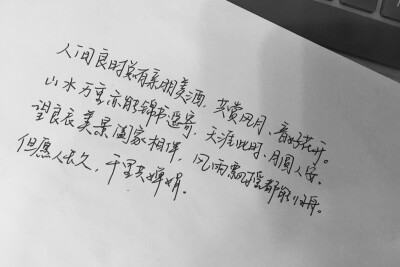 人间良时总有亲朋美酒，共赏风月，看好花开。
山水万重亦能锦书遥寄，天涯此时，月圆人安。
望良辰美景阖家相伴，风雨飘摇都能归舟。
但愿人长久，千里共婵娟。